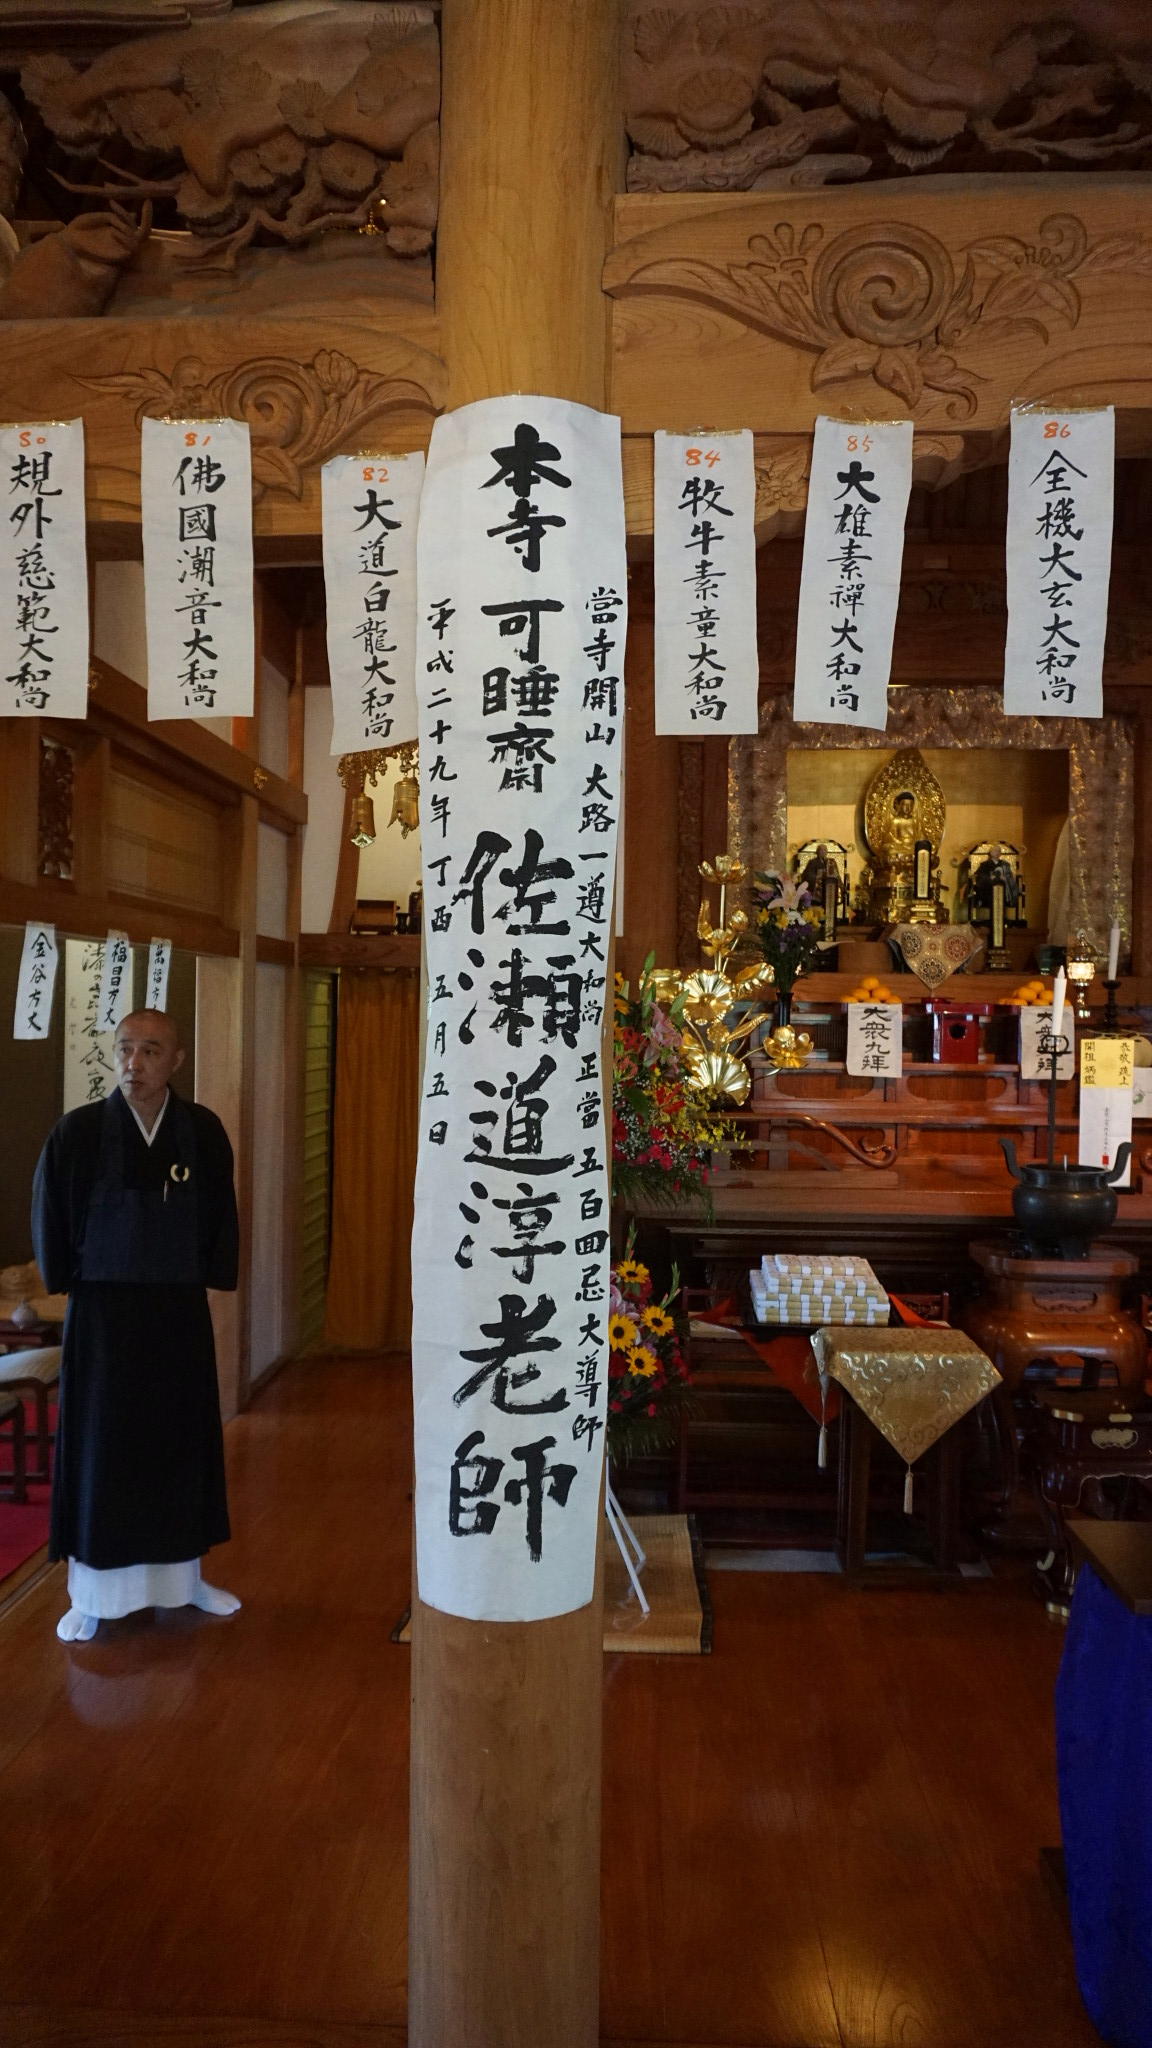 當寺開山 大路一遵大和尚 正當五百回忌大導師
本寺 可睡齋 佐瀬道淳老師
平成二十九年 丁酉 五月五日
86
全機大玄大和尚
85
大雄素禪大和尚
84
牧牛素童大和尚
82
大道白龍大和尚
81
佛國潮音大和尚
80
規外慈範大和尚
大衆九拝
大衆 拝
福昌方丈
金谷方丈